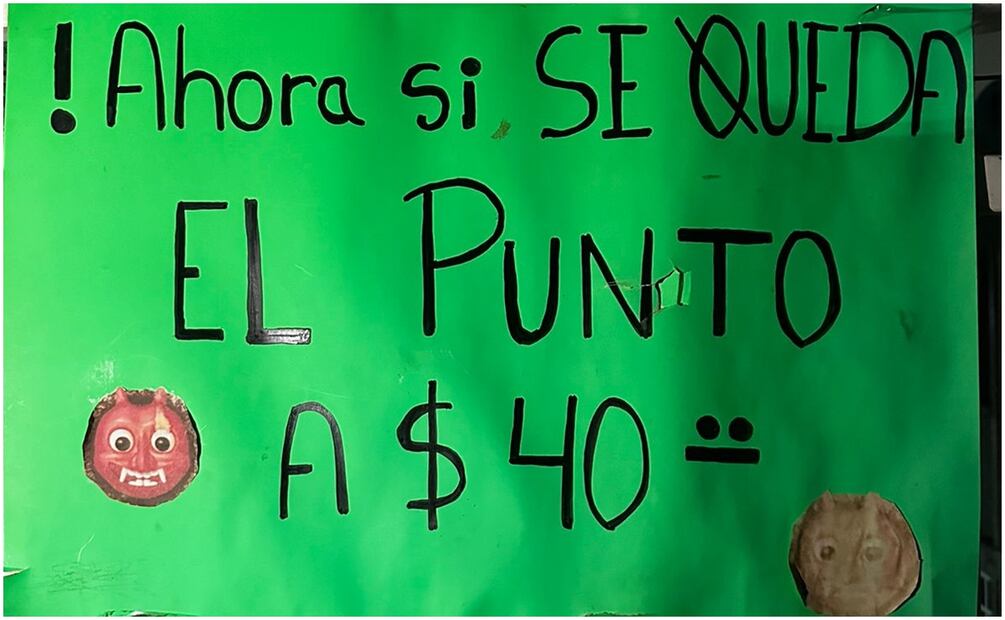 !Ahora si SE QUEDA
EL PUNTO
A $40